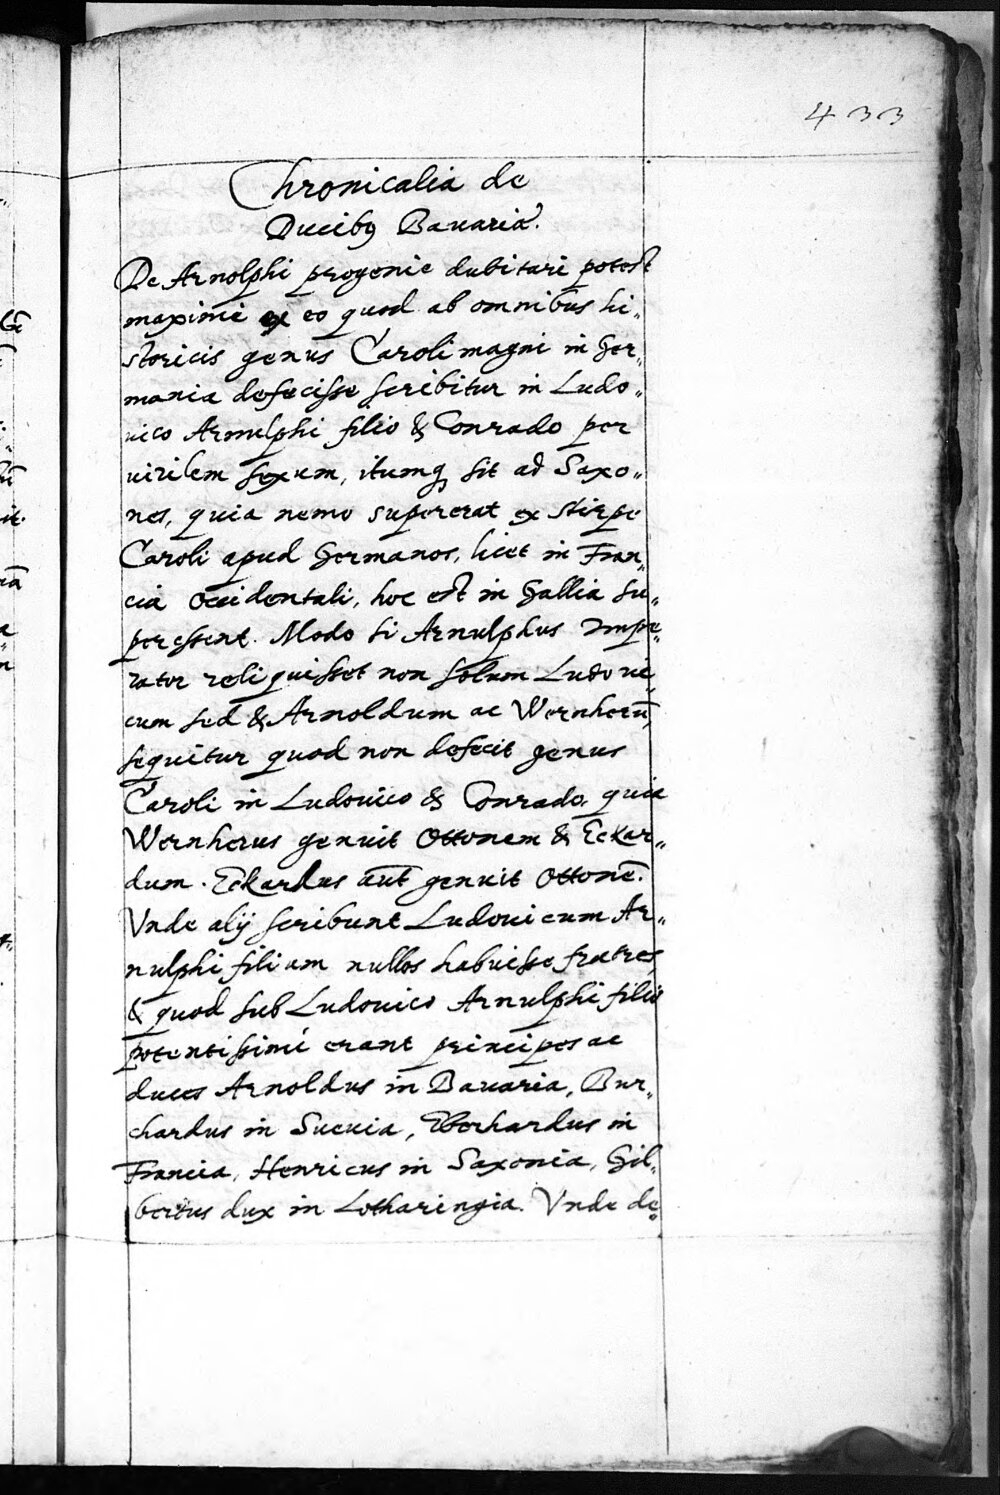 433
Chronicalia de
Ducibꝰ Bauariæ.
De Arnolphi progenie dubitari potest
maximè ex eo quod ab omnibus hi„
storicis genus Caroli magni in Ger„
mania defecisse scribitur in Ludo„
uico Arnulphi filio & Conrado per
uirilem sexum, itumq, sit ad Saxo„
nes, quia nemo supererat ex stirpe
Caroli apud Germanos, licet in Fran„
cia occidentali, hoc est in Gallia su„
peressent. Modo si Arnulphus Impe„
rator reliquisset non solum Ludoui
cum sed & Arnoldum ac Wernherū,
sequitur quod non defecit genus
Caroli in Ludouico & Conrado, quia
Wernherus genuit Ottonem & Eckar„
dum. Eckardus aūt genuit Ottonē.
Vnde alij scribunt Ludouicum Ar„
nulphi filium nullos habuisse fratres,
& quod sub Ludouico Arnulphi filio
potentissimi erant principes ac
duces Arnoldus in Bauaria, Bur„
chardus in Sueuia, Eberhardus in
Francia, Henricus in Saxonia, Gil„
bertus dux in Lotharingia. Vnde de„